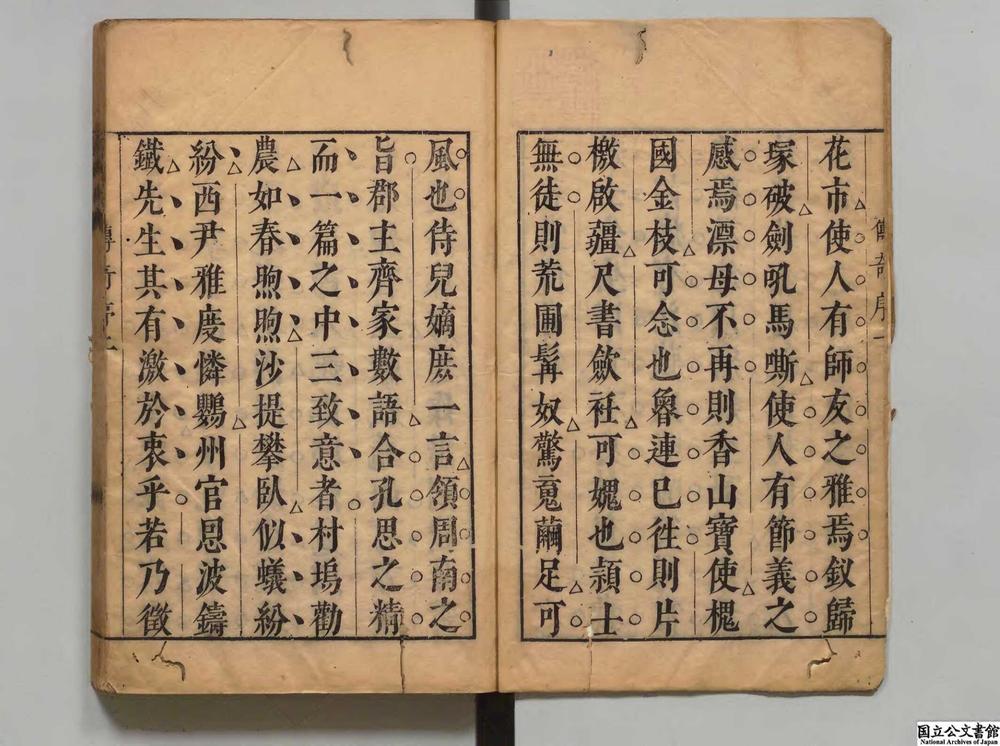 傳奇序
花市使人有師友之雅焉釵歸
塚破劍吼馬嘶使人有節義之
感焉漂母不再則香山寶使槐
國金枝可念也魯連已徃則片
檄啟疆尺書歛衽可媿也頴士
無徒則荒圃髯奴驚䰟繭足可
風也侍兒嫡庶一言領周南之
旨郡主齊家數語合孔思之精
而一篇之中三致意者村塢勸
農如春煦煦沙提攀臥似蟻紛
紛西尹雅度憐鸚州官恩波鑄
鐵先生其有激於衷乎若乃徵
傳奇序
国立公文書館
National Archives of Japan